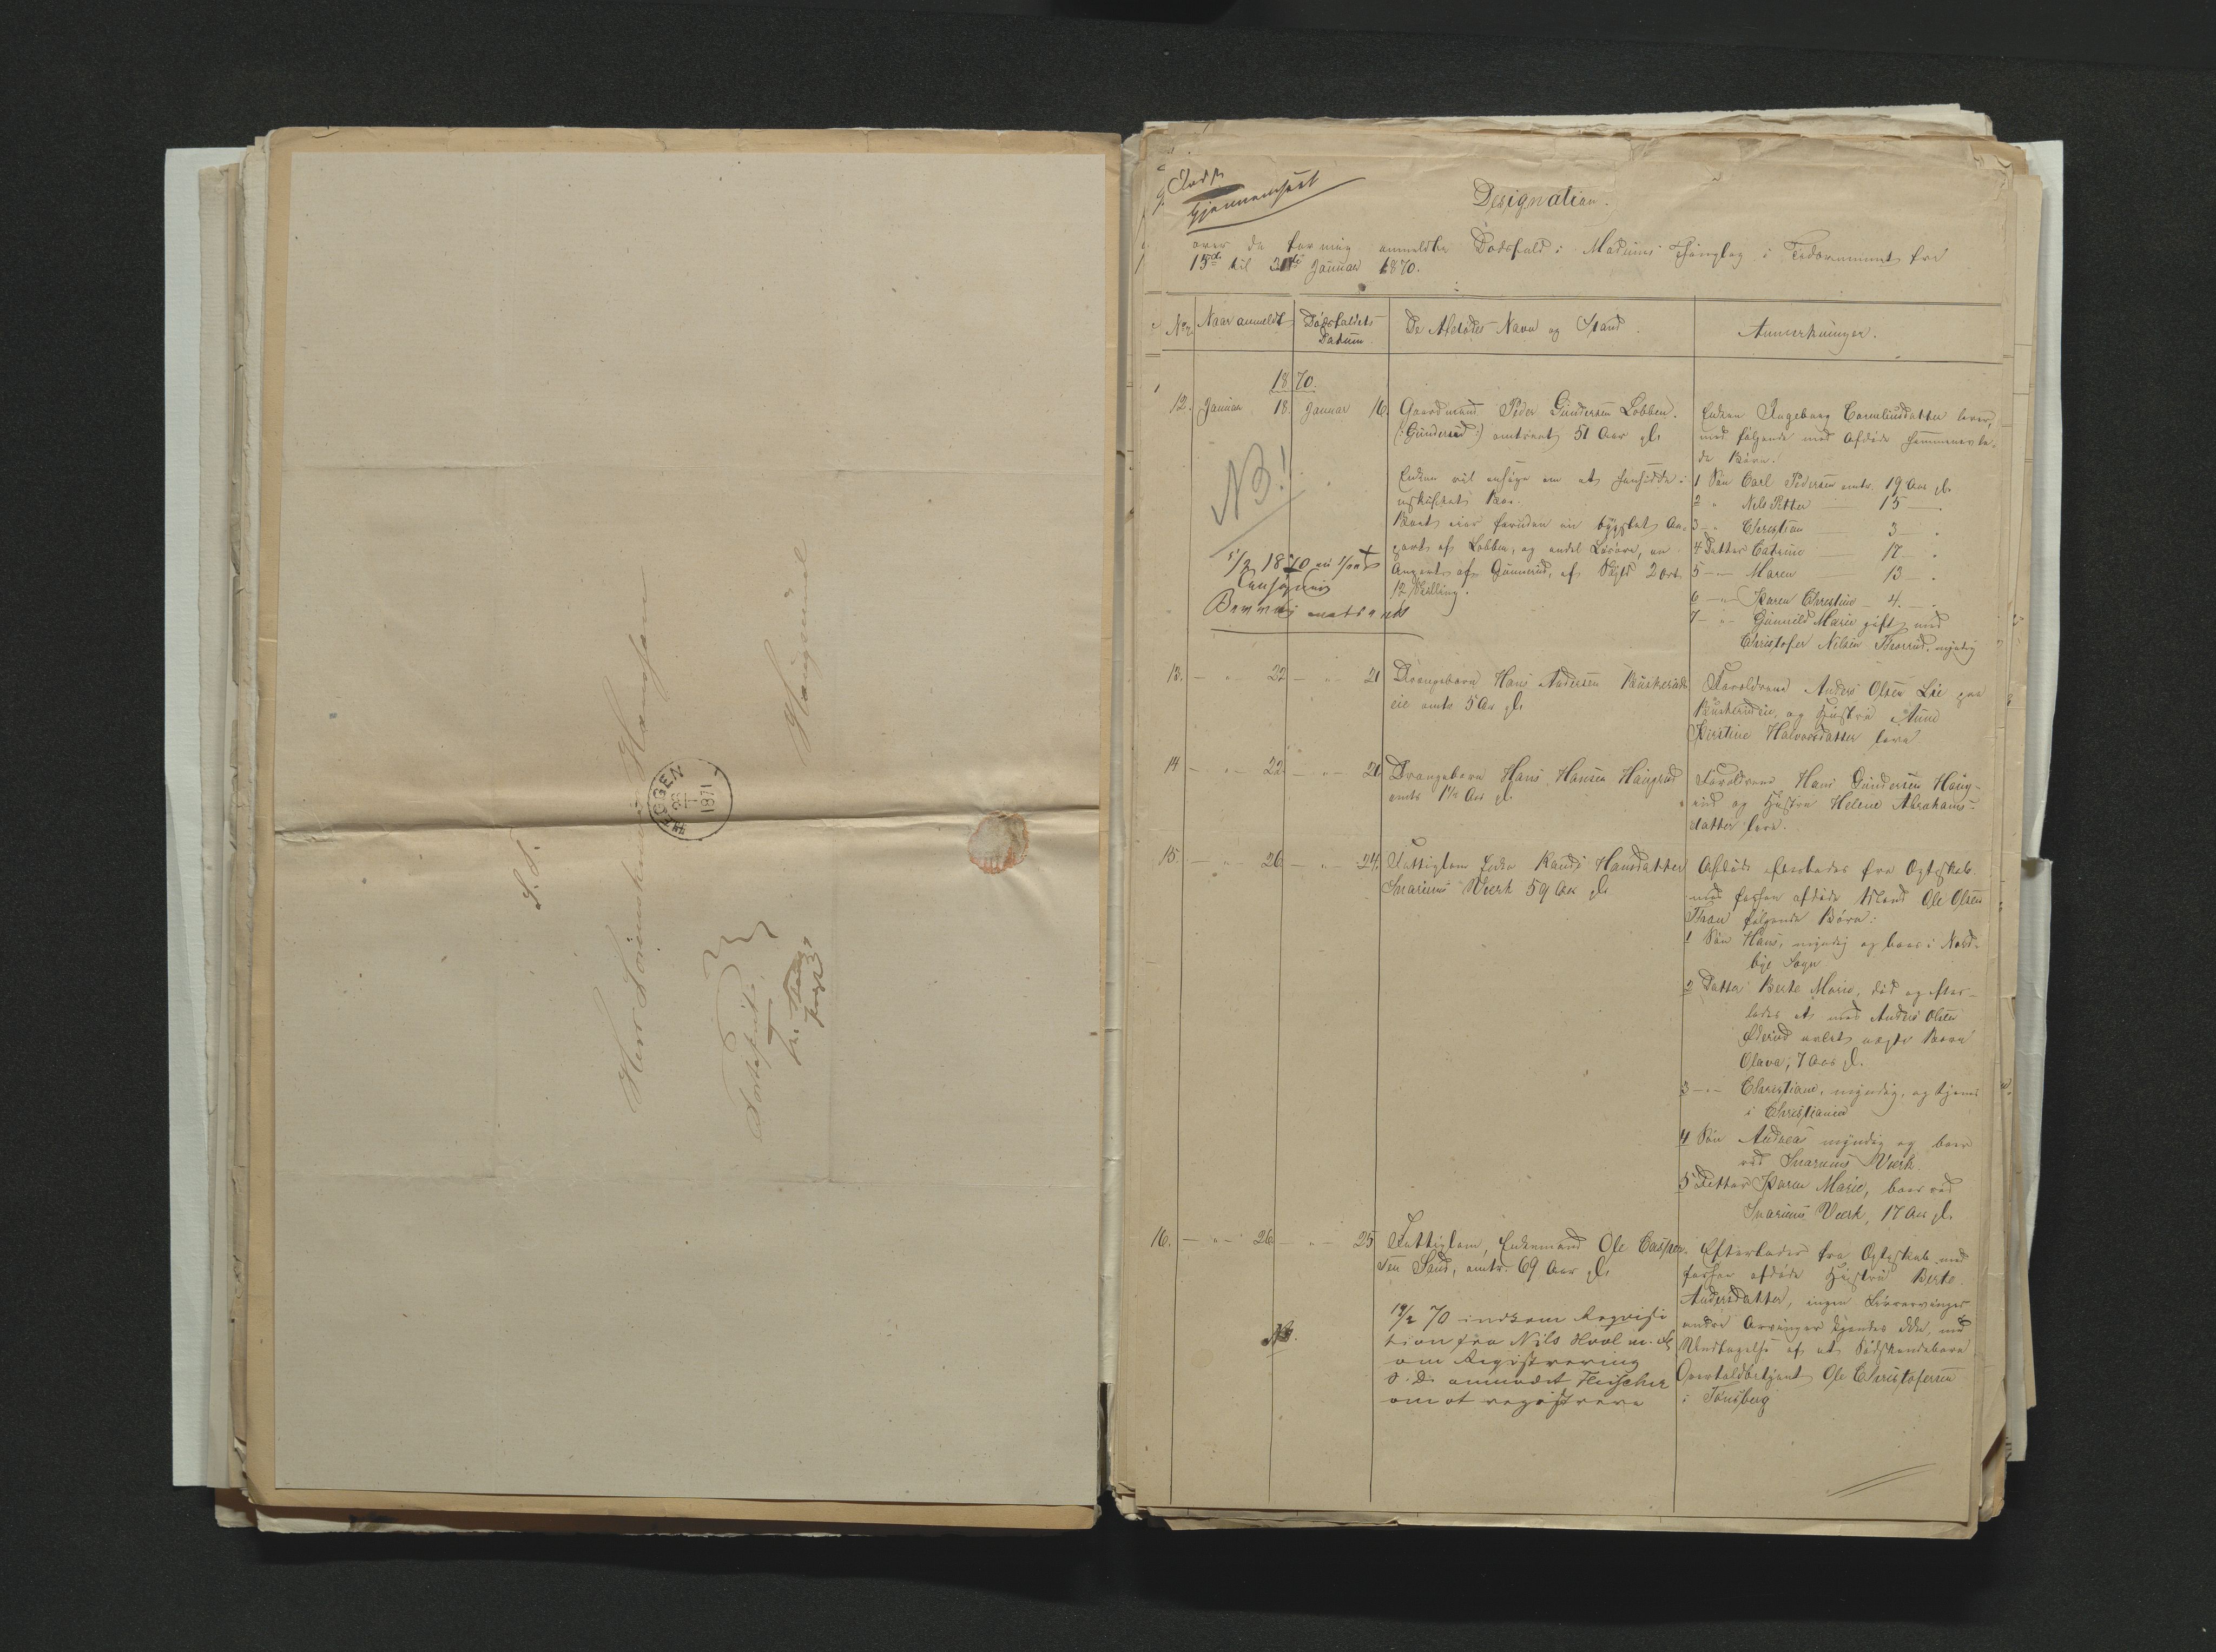 S. T.
Herr Sorenskriver
HEGGEN
1871
Haugsund
Gjennemseet
Designation.
over de for mig anmeldte Dødsfald i Modums Thinglag i Tidsrummet fra
15de til 31te Januar 1870.
No Naar anmeldt Dødsfaldets Datum De Afdødes Navn og Stand. Anmærkninger.
1870.
12. Januar 18. Januar 16. Gaardmand Peder Gundersen Lobben.
(:Gunderud:) omtrent 51 Aar gl.
Enken Ingeborg Corneliusdatter lever,
med følgende med Afdøde sammenavle-
de Børn:
NB!
Enken vil ansøge om at hensidde i
uskiftet Bo.
Boet eier foruden en bygslet An-
part af Lobben, og endel Løsøre, en
Anpart af Gunnerud, af Skyld 2 Ort
12 Skilling.
5/2 1870
Bevilling
1 Søn Carl Pedersen omtr. 19 Aar gl.
2 " Nils Petter 15 "
3 " Christian 3 "
4 Datter Catrine 17 "
5 " Maren 13 "
6 " Karen Christine 4 "
7 " Gunnild Marie gift med
Christofer Nilsen myndig
13. " 22 " 21 Drengebarn Hans Andersen Buskeruds
eie omtr 5 Aar gl.
Forældrene Anders Olsen Lie paa
Buskerudeie, og Hustru Anne
Kirstine Halvorsdatter leve
14 " 22 " 21 Drengebarn Hans Hansen Haugrud
omtr 1 1/2 Aar gl.
Forældrene Hans Gundersen Haug-
rud og Hustru Helene Abrahams-
datter leve.
15. " 26 " 24. Fattiglem Enke Randi Hansdatter
Snarums Værk 59 Aar gl.
Afdøde efterlader fra Ægteskab
med forhen afdøde Mand Ole Olsen
følgende Børn:
1 Søn Hans, myndig og boer i Nord-
bye Sogn
2 Datter Berte Marie, død og efter-
lader et med Anders Olsen
avlet ægte Barn
Olava, 7 Aar gl.
3 " Christiane, myndig, og tjener
i Christiania
4 Søn Andreas myndig og boer
ved Snarums Værk.
5 Datter Karen Marie, boer ved
Snarums Værk, 17 Aar gl.
16. " 26 " 25 Fattiglem, Enkemand Ole Casper-
sen Sand, omtr. 69 Aar gl.
Efterlader fra Ægteskab med
forhen afdøde Hustru Berte
Andersdatter, ingen Livsarvinger
andre Arvinger kjendes ikke, med
Undtagelse af et Sødskendebarn
Overtoldbetjent Ole Christofersen
i Tønsberg
NB.
19/2 70 indkom Reqvisi
tion fra Nils Hval m. fl.
om Registrering
S. D. anmodet Fleischer
om at registrere